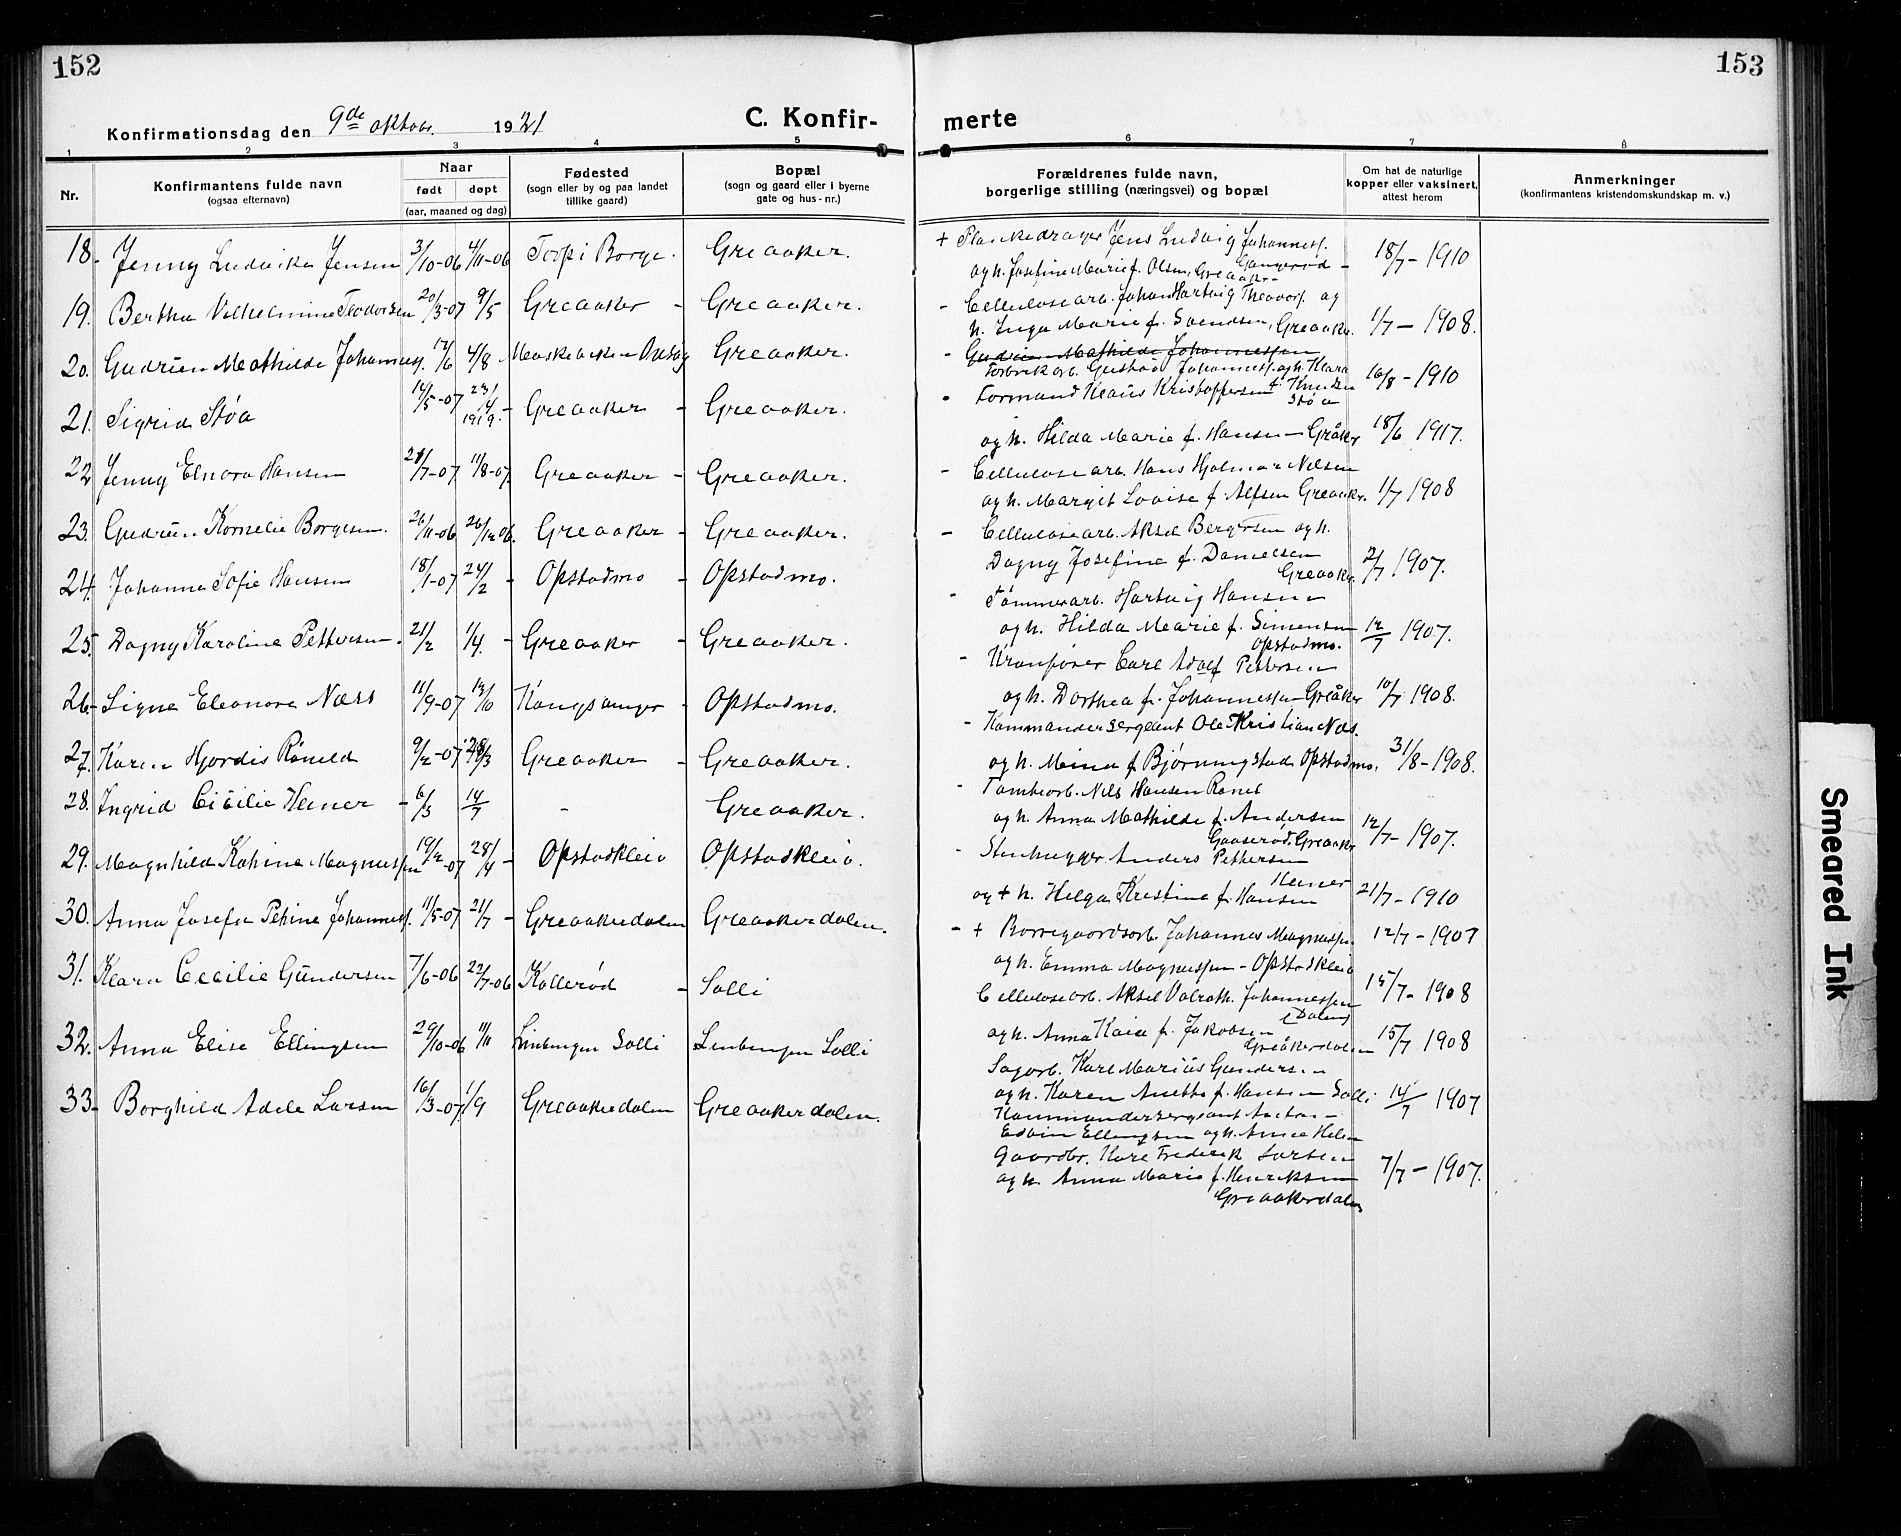 152
153
Konfirmationsdag den 9de oktobr. 1921
C. Konfir-
merte
1 2 3 4 5 6 7 8
Nr.
Konfirmantens fulde navn
(ogsaa efternavn)
Naar
født døpt
(aar, maaned og dag)
Fødested
(sogn eller by og paa landet
tillike gaard)
Bopæl
(sogn og gaard eller i byerne
gate og hus-nr.)
Forældrenes fulde navn,
borgerlige stilling (næringsvei) og bopæl
Om hat de naturlige
kopper eller vaksinert,
attest herom
Anmerkninger
(konfirmantens kristendomskundskap m. v.)
18. Jenny Ludvika Jensen 3/10-06 4/11-06 Torp i Borge. Greaaker.
19. Bertha Vilhelmine Teodorsen 20/3-07 9/5 Greaaker - Greaaker.
20. Gudrun Mathilde Johanness. 12/6 4/8 Greaaker.
21. Sigrid Støa 14/5-07 23/4 1919. - Greaaker - Greaaker.
22 Jenny Elnora Hansen 21/7-07 11/8-07 Greaaker - Greaaker.
23. Gudrun Kornelie Borgesen. 26/11-06 26/12 06. Greaaker - Greaaker.
24. Johanna Sofie Hansen 18/1-07 24/2 - Opstadmo - Opstadmo.
25. Dagny Karoline Pettersen. 21/2 1/4. - Greaaker - Greaaker.
26.- Signe Eleonora Næss 11/9-07 13/10 Kongsvinger - Opstadmo.
27. Karen Hjordis Röneld 9/2-07 /3 Greaaker - Greaaker.
28. Ingrid Cicilie Heiner - 6/3 14/7 - Greaaker.
29. Magnhild Katrine Magnussen 19/2-07 28/4 - Opstadkleiv Opstadkleiv.
30. Anna Josefa Petrine Johanness. 11/5-07 21/7 - Greaakerdalen Greaakerdalen.
31. Klara Cecilie Gundersen 7/6-06 22/7-06 Kollerød - Solli
32. Anna Elise Ellingsen 29/10-06 11/11 Solli Solli
33- Borghild Adele Larsen 16/3-07. 1/9 Greaakerdalen Greaakerdalen.
+ Plankedrager Jens Ludvig Johanness.
og h. Josefine Marie f. Olsen, Greaaker -
18/7-1910
- Cellulosearb. Johan Hartvig Theodors. og
h. Inga Marie f. Svendsen, Greaaker. 1/7-1908.
- Gudrun Mathilde Johannessen
Fabrikarb. Gustav Johanness. og h. Klara
f. Knudsen 16/8-1910
- Formand Klaus Kristoffersen Støa
og h. Hilda Marie f. Hansen Gråker 18/6 1917.
- Cellulosearb. Hans Hjalmar Nilsen
og h. Margit Lovise f. Alfsen Greaaker. 1/7 1908
- Cellulosearb. Aksel Bergersen og h.
Dagny Josefine f. Danielsen
Greaaker. 2/7 1907.
- Tømmerarb. Hartvig Hansen
og h. Hilda Marie f. Simensen
Opstadmo. 12/7 1907.
- Kranfører Carl Adolf Pettersen
og h. Dorthea f. Johannessen Greåker 10/7 1908.
- Kommandersergeant Ole Kristian Næs.
og h. Mina f Bjørnungstad Opstadmo. 31/8-1908.
- Tomtearb. Nils Hansen Röneld
og h. Anna Mathilde f. Andersen
Greaaker 12/7-1907.
- Stenhugger Anders Pettersen
Heiner
og + h. Helga Kristine f. Hansen 21/7-1910
- + Borregaardsarb. Johannes Magnussen. 12/7-1907
og h. Emma Magnussen - Opstadkleiv
Cellulosearb. Aksel Valrath. Johannessen 15/7-1908
(Dalen)
og h. Anna Kaia f. Jakobsen
Greåkerdalen 15/7 1908
Sagarb. Karl Marius Gundersen
og h. Karen Anette f. Hansen Solli 14/7 1907
Kommandersergeant Anton -
Edvin Ellingsen og h. Anna Helen
Gaardbr. Karl Frederik Larsen
og h. Anna Marie f. Henriksen 7/7-1907.
Greaakerdalen
Smeared Ink